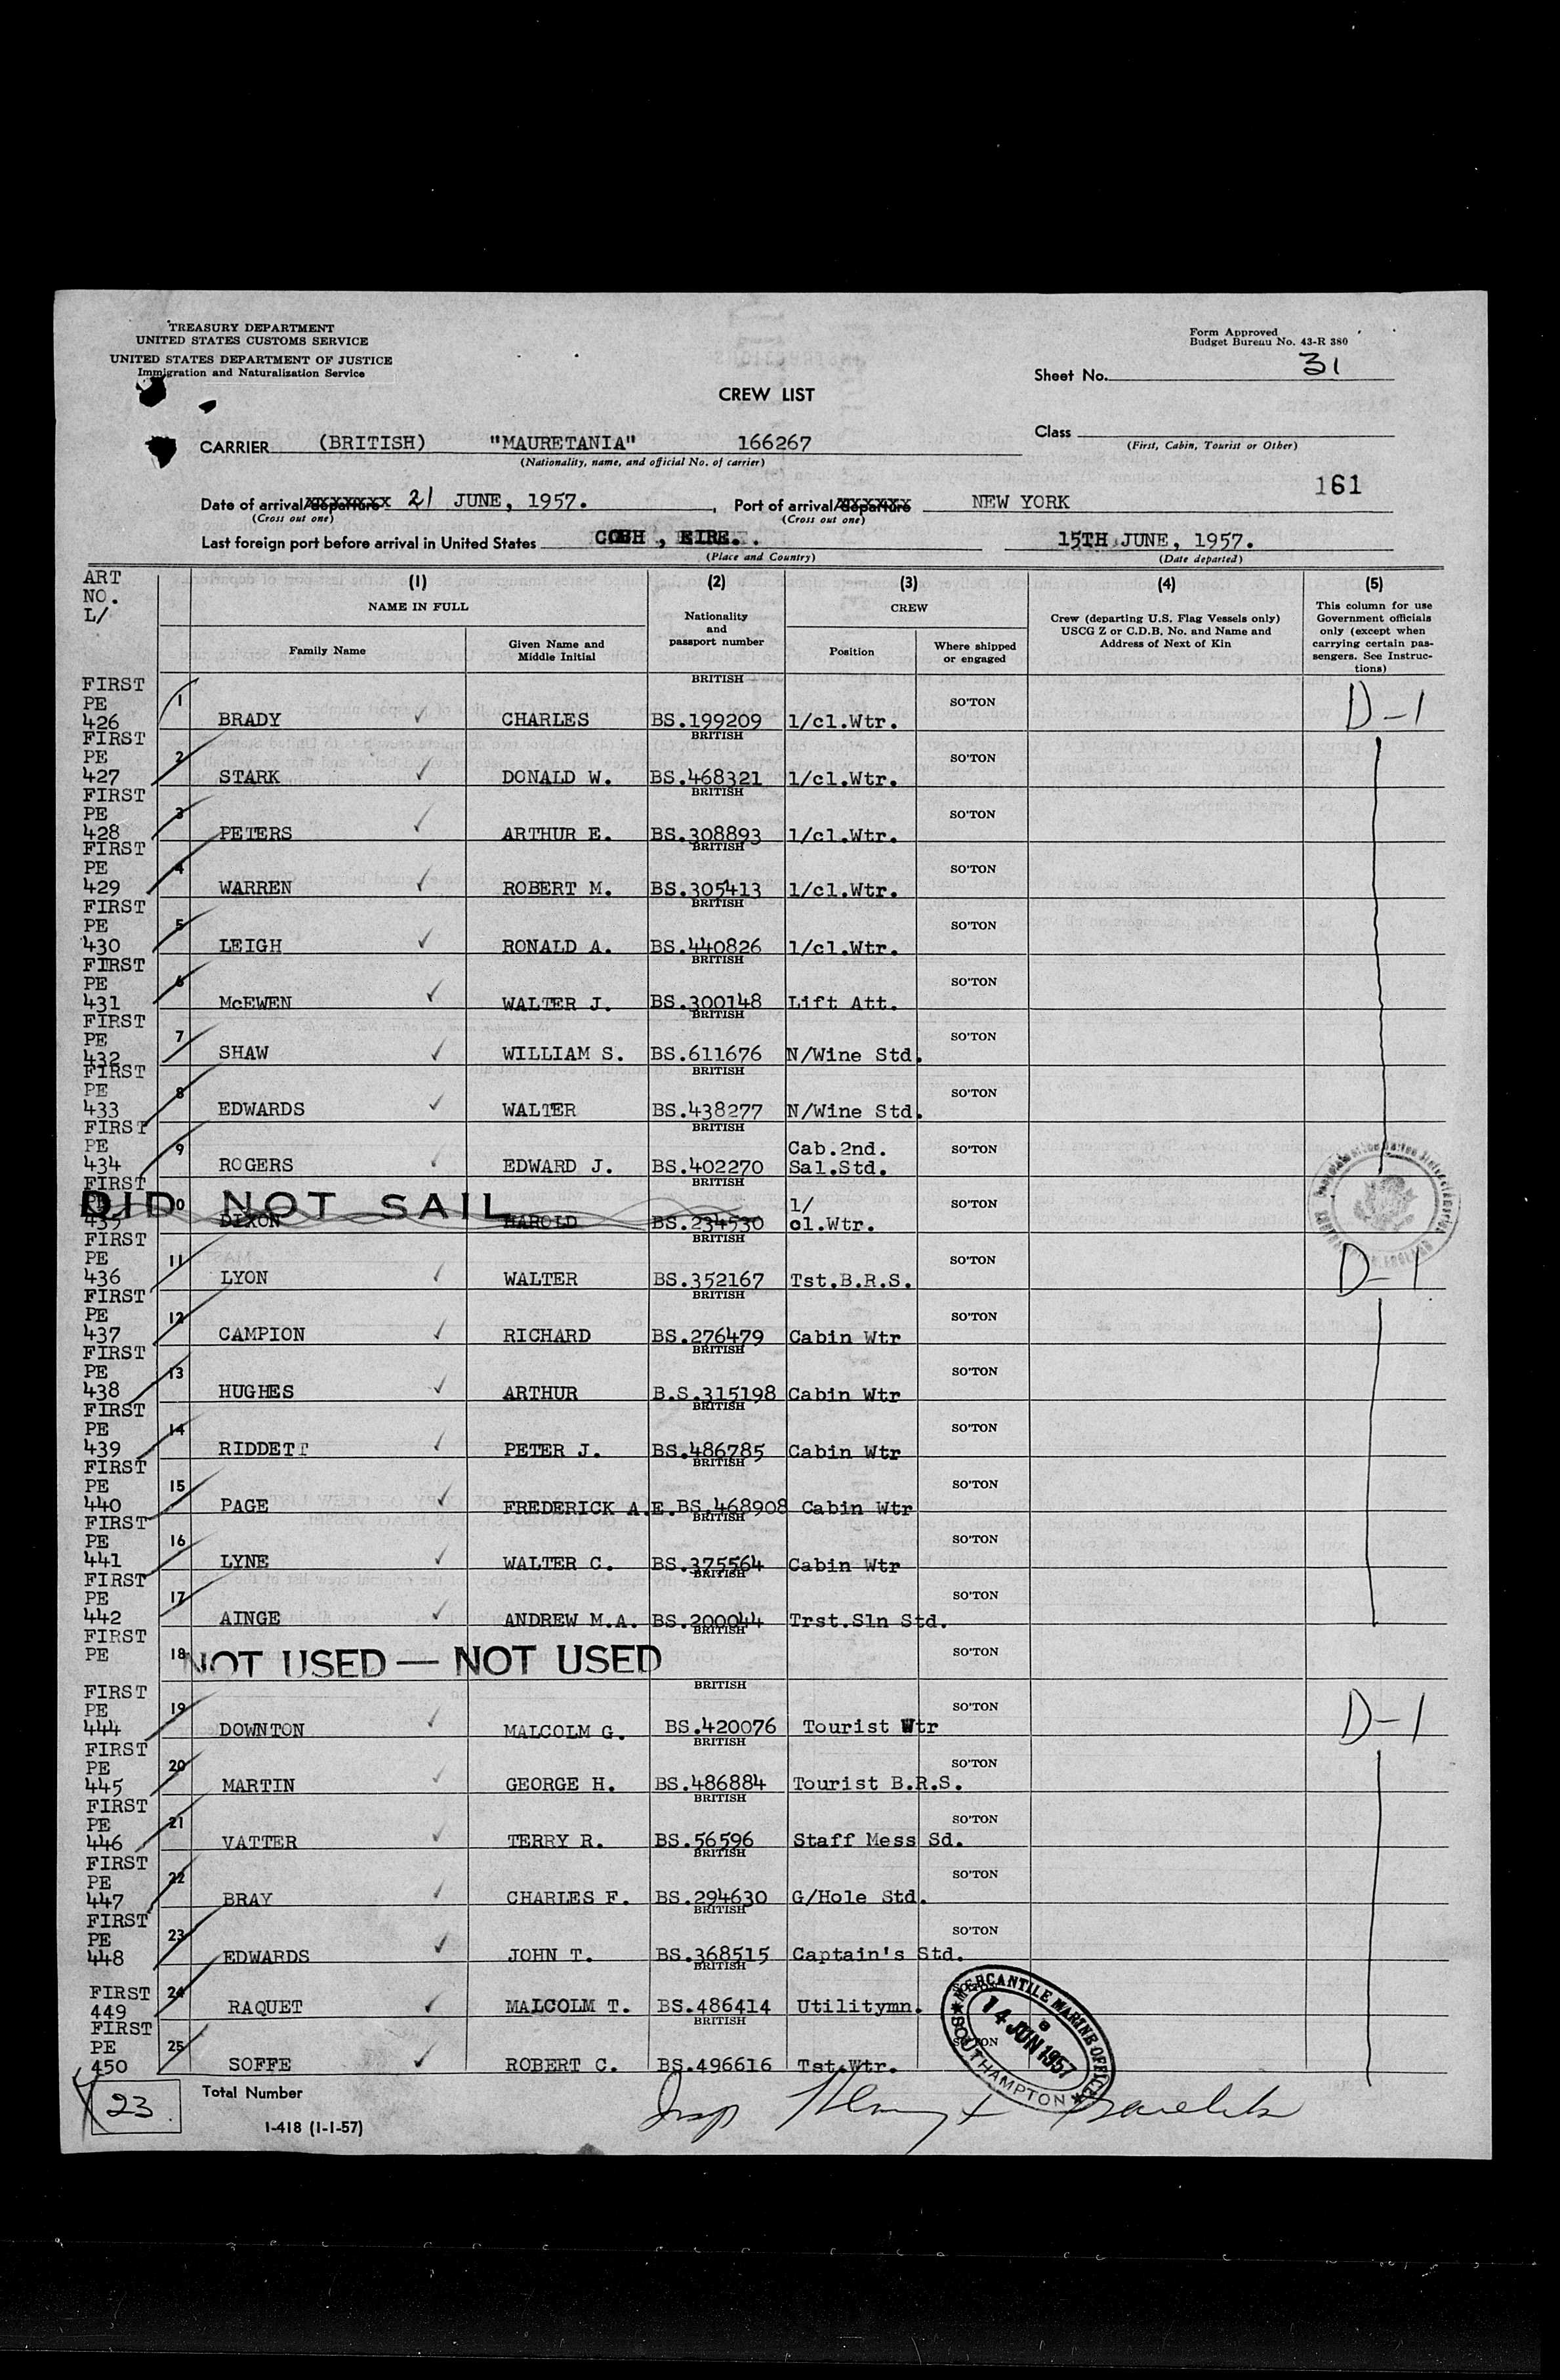 TREASURY DEPARTMENT
UNITED STATES CUSTOMS SERVICE
UNITED STATES DEPARTMENT OF JUSTICE
Immigration and Naturalization Service
Form Approved
Budget Bureau No. 43-R 380
Sheet No. 31
CREW LIST
CARRIER (BRITISH) "MAURETANIA" 166267
(Nationality, name, and official No. of carrier)
Class
(First, Cabin, Tourist or Other)
161
Date of arrival/departure 21 JUNE, 1957. , Port of arrival/departure NEW YORK
(Cross out one) (Cross out one)
Last foreign port before arrival in United States COBH , EIRE. . 15TH JUNE, 1957.
(Place and Country) (Date departed)
ART NO. L/ (1) (2) (3) (4) (5)
NAME IN FULL Nationality and passport number CREW Crew (departing U.S. Flag Vessels only) USCG Z or C.D.B. No. and Name and Address of Next of Kin This column for use Government officials only (except when carrying certain passengers. See Instructions)
Family Name Given Name and Middle Initial Position Where shipped or engaged
FIRST PE 426 1 BRADY CHARLES BRITISH BS.199209 1/cl.Wtr. SO'TON D-1
FIRST PE 427 2 STARK DONALD W. BRITISH BS.468321 1/cl.Wtr. SO'TON
FIRST PE 428 3 PETERS ARTHUR E. BRITISH BS.308893 1/cl.Wtr. SO'TON
FIRST PE 429 4 WARREN ROBERT M. BRITISH BS.305413 1/cl.Wtr. SO'TON
FIRST PE 430 5 LEIGH RONALD A. BRITISH BS.440826 1/cl.Wtr. SO'TON
FIRST PE 431 6 McEWEN WALTER J. BRITISH BS.300148 Lift Att. SO'TON
FIRST PE 432 7 SHAW WILLIAM S. BRITISH BS.611676 N/Wine Std. SO'TON
FIRST PE 433 8 EDWARDS WALTER BRITISH BS.438277 N/Wine Std. SO'TON
FIRST PE 434 9 ROGERS EDWARD J. BRITISH BS.402270 Cab.2nd. Sal.Std. SO'TON
DID NOT SAIL
FIRST 435 DIXON HAROLD BRITISH BS.234530 1/ cl.Wtr. SO'TON
FIRST PE 436 11 LYON WALTER BRITISH BS.352167 Tst.B.R.S. SO'TON D-1
FIRST PE 437 12 CAMPION RICHARD BRITISH BS.276479 Cabin Wtr SO'TON
FIRST PE 438 13 HUGHES ARTHUR BRITISH B.S.315198 Cabin Wtr SO'TON
FIRST PE 439 14 RIDDETT PETER J. BRITISH BS.486785 Cabin Wtr SO'TON
FIRST PE 440 15 PAGE FREDERICK A.E. BRITISH BS.468908 Cabin Wtr SO'TON
FIRST PE 441 16 LYNE WALTER C. BRITISH BS.375564 Cabin Wtr SO'TON
FIRST PE 442 17 AINGE ANDREW M.A. BRITISH BS.200044 Trst.Sln Std. SO'TON
FIRST PE 18 NOT USED — NOT USED BRITISH SO'TON
FIRST PE 444 19 DOWNTON MALCOLM G. BRITISH BS.420076 Tourist Wtr SO'TON D-1
FIRST PE 445 20 MARTIN GEORGE H. BRITISH BS.486884 Tourist B.R.S. SO'TON
FIRST PE 446 21 VATTER TERRY R. BRITISH BS.56596 Staff Mess Sd. SO'TON
FIRST PE 447 22 BRAY CHARLES F. BRITISH BS.294630 G/Hole Std. SO'TON
FIRST PE 448 23 EDWARDS JOHN T. BRITISH BS.368515 Captain's Std. SO'TON
FIRST 449 24 RAQUET MALCOLM T. BRITISH BS.486414 Utilitymn.
FIRST PE 450 25 SOFFE ROBERT C. BRITISH BS.496616 Tst.Wtr. SO'TON
MERCANTILE MARINE OFFICE
14 JUN 1957
SOUTHAMPTON
23 Total Number
I-418 (1-1-57)